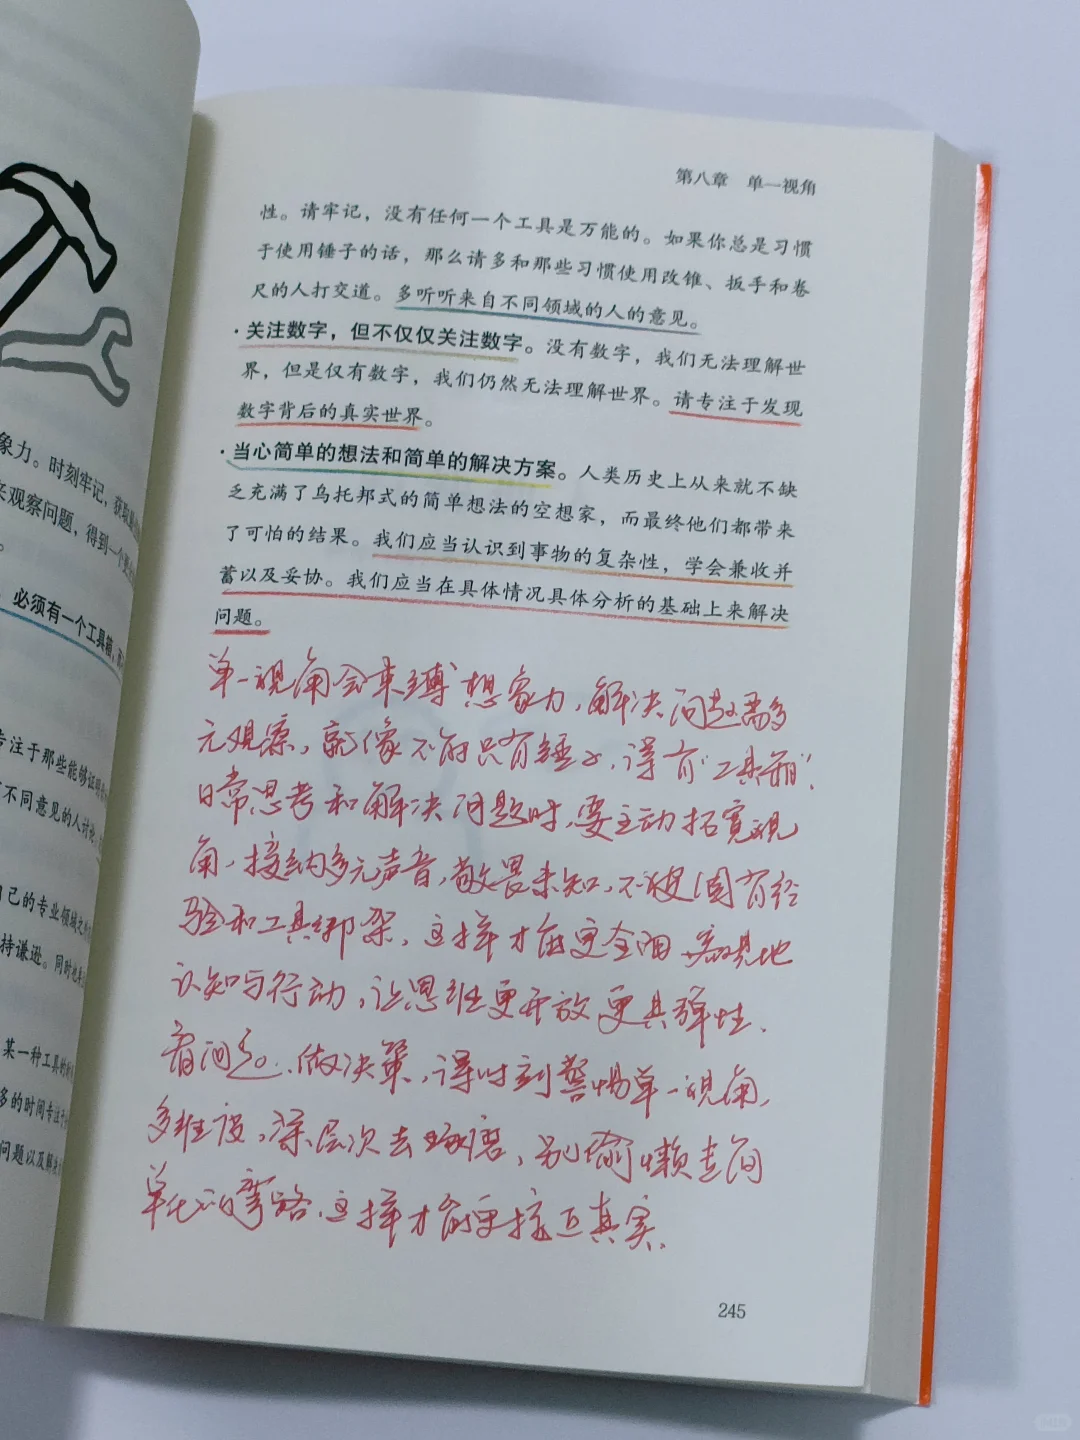 第八章 单一视角
性。请牢记，没有任何一个工具是万能的。如果你总是习惯
于使用锤子的话，那么请多和那些习惯使用改锥、扳手和卷
尺的人打交道。多听听来自不同领域的人的意见。
·关注数字，但不仅仅关注数字。没有数字，我们无法理解世
界，但是仅有数字，我们仍然无法理解世界。请专注于发现
数字背后的真实世界。
·当心简单的想法和简单的解决方案。人类历史上从来就不缺
乏充满了乌托邦式的简单想法的空想家，而最终他们都带来
了可怕的结果。我们应当认识到事物的复杂性，学会兼收并
蓄以及妥协。我们应当在具体情况具体分析的基础上来解决
问题。
单一视角会束缚想象力，解决问题需多
元观察，就像不能只有锤子，得有“工具箱”。
日常思考和解决问题时，要主动拓宽视
角，接纳多元声音，敬畏未知，不被固有经
验和工具绑架，这样才能更全面、客观地
认知与行动，让思维更开放更具弹性。
看问题、做决策，得时刻警惕单一视角，
多维度，深层次去琢磨，别偷懒走简
单化的弯路，这样才能更接近真实。
245
象力。时刻牢记，获取
来观察问题，得到一个更
。
，必须有一个工具箱，
专注于那些能够证明
不同意见的人讨论，
自己的专业领域之
持谦逊。同时也
某一种工具的
多的时间专注于
问题以及解